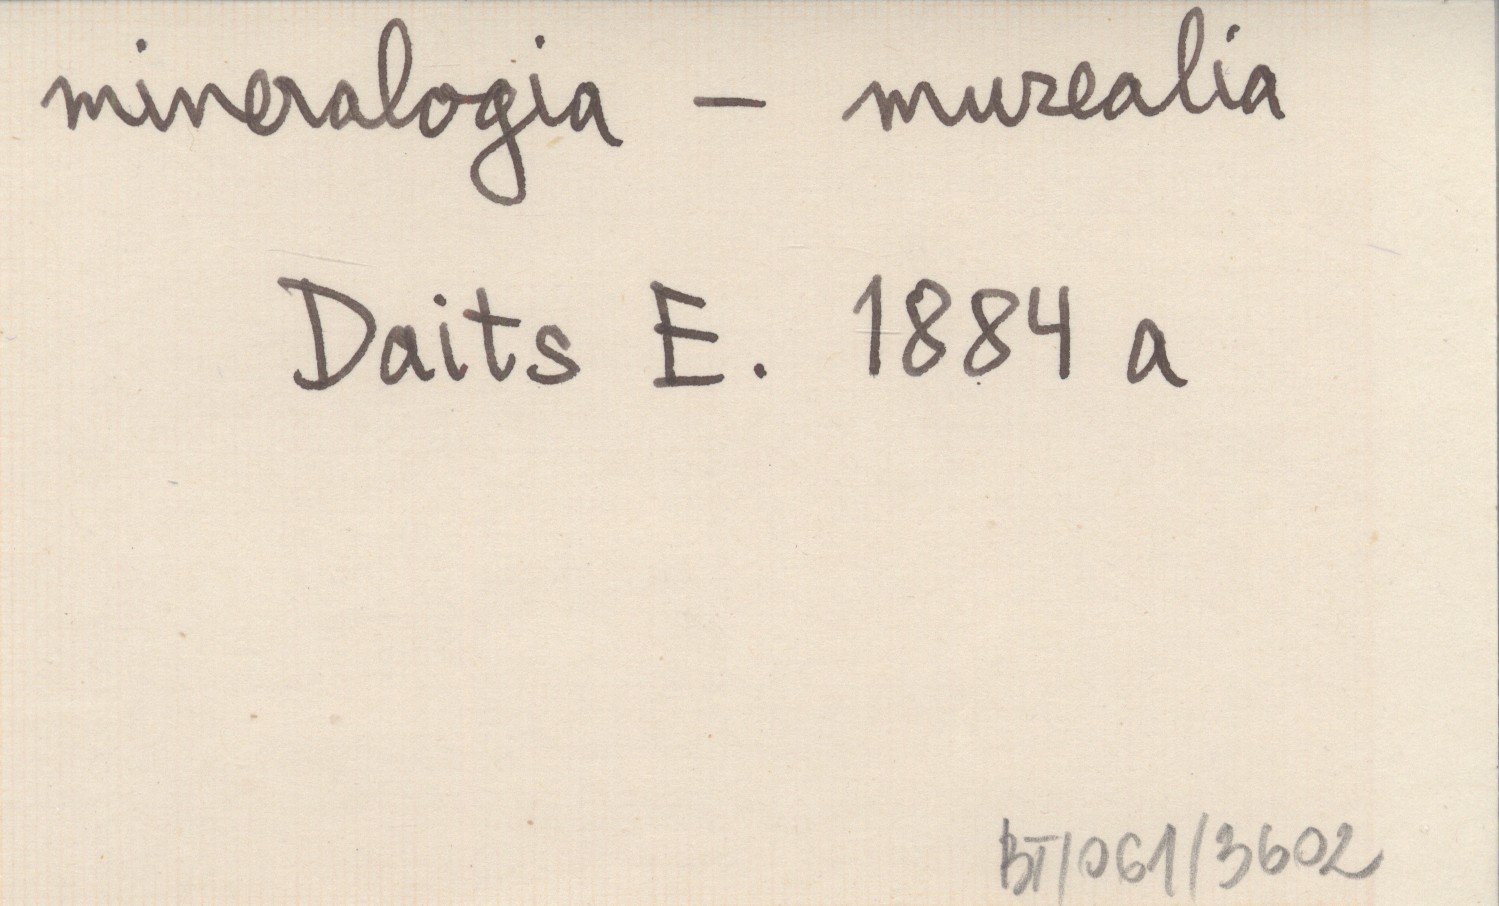 mineralogia - muzealia
Daits E. 1884 a
BT/061/3602